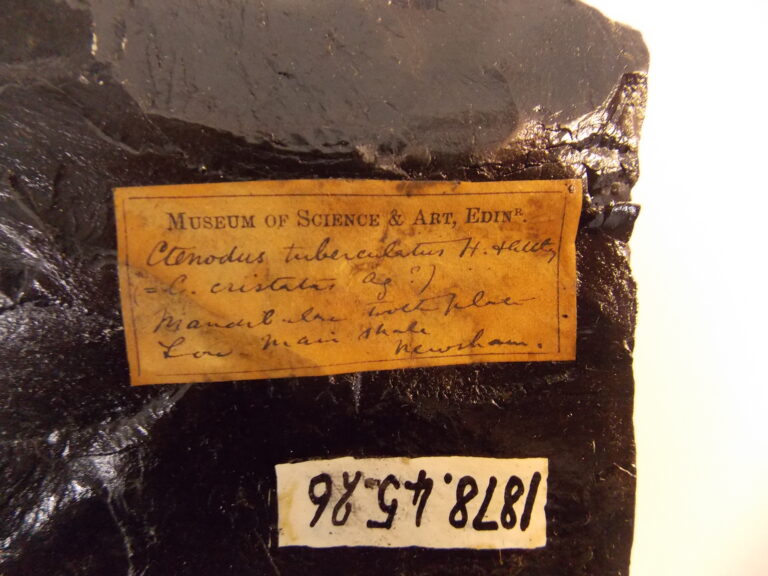 MUSEUM OF SCIENCE & ART, EDINR.
Ctenodus tuberculatus H. & Atthey
(= C. cristatus Ag?)
Mandibular tooth plate
Low Main shale Newsham.
1878.45.26